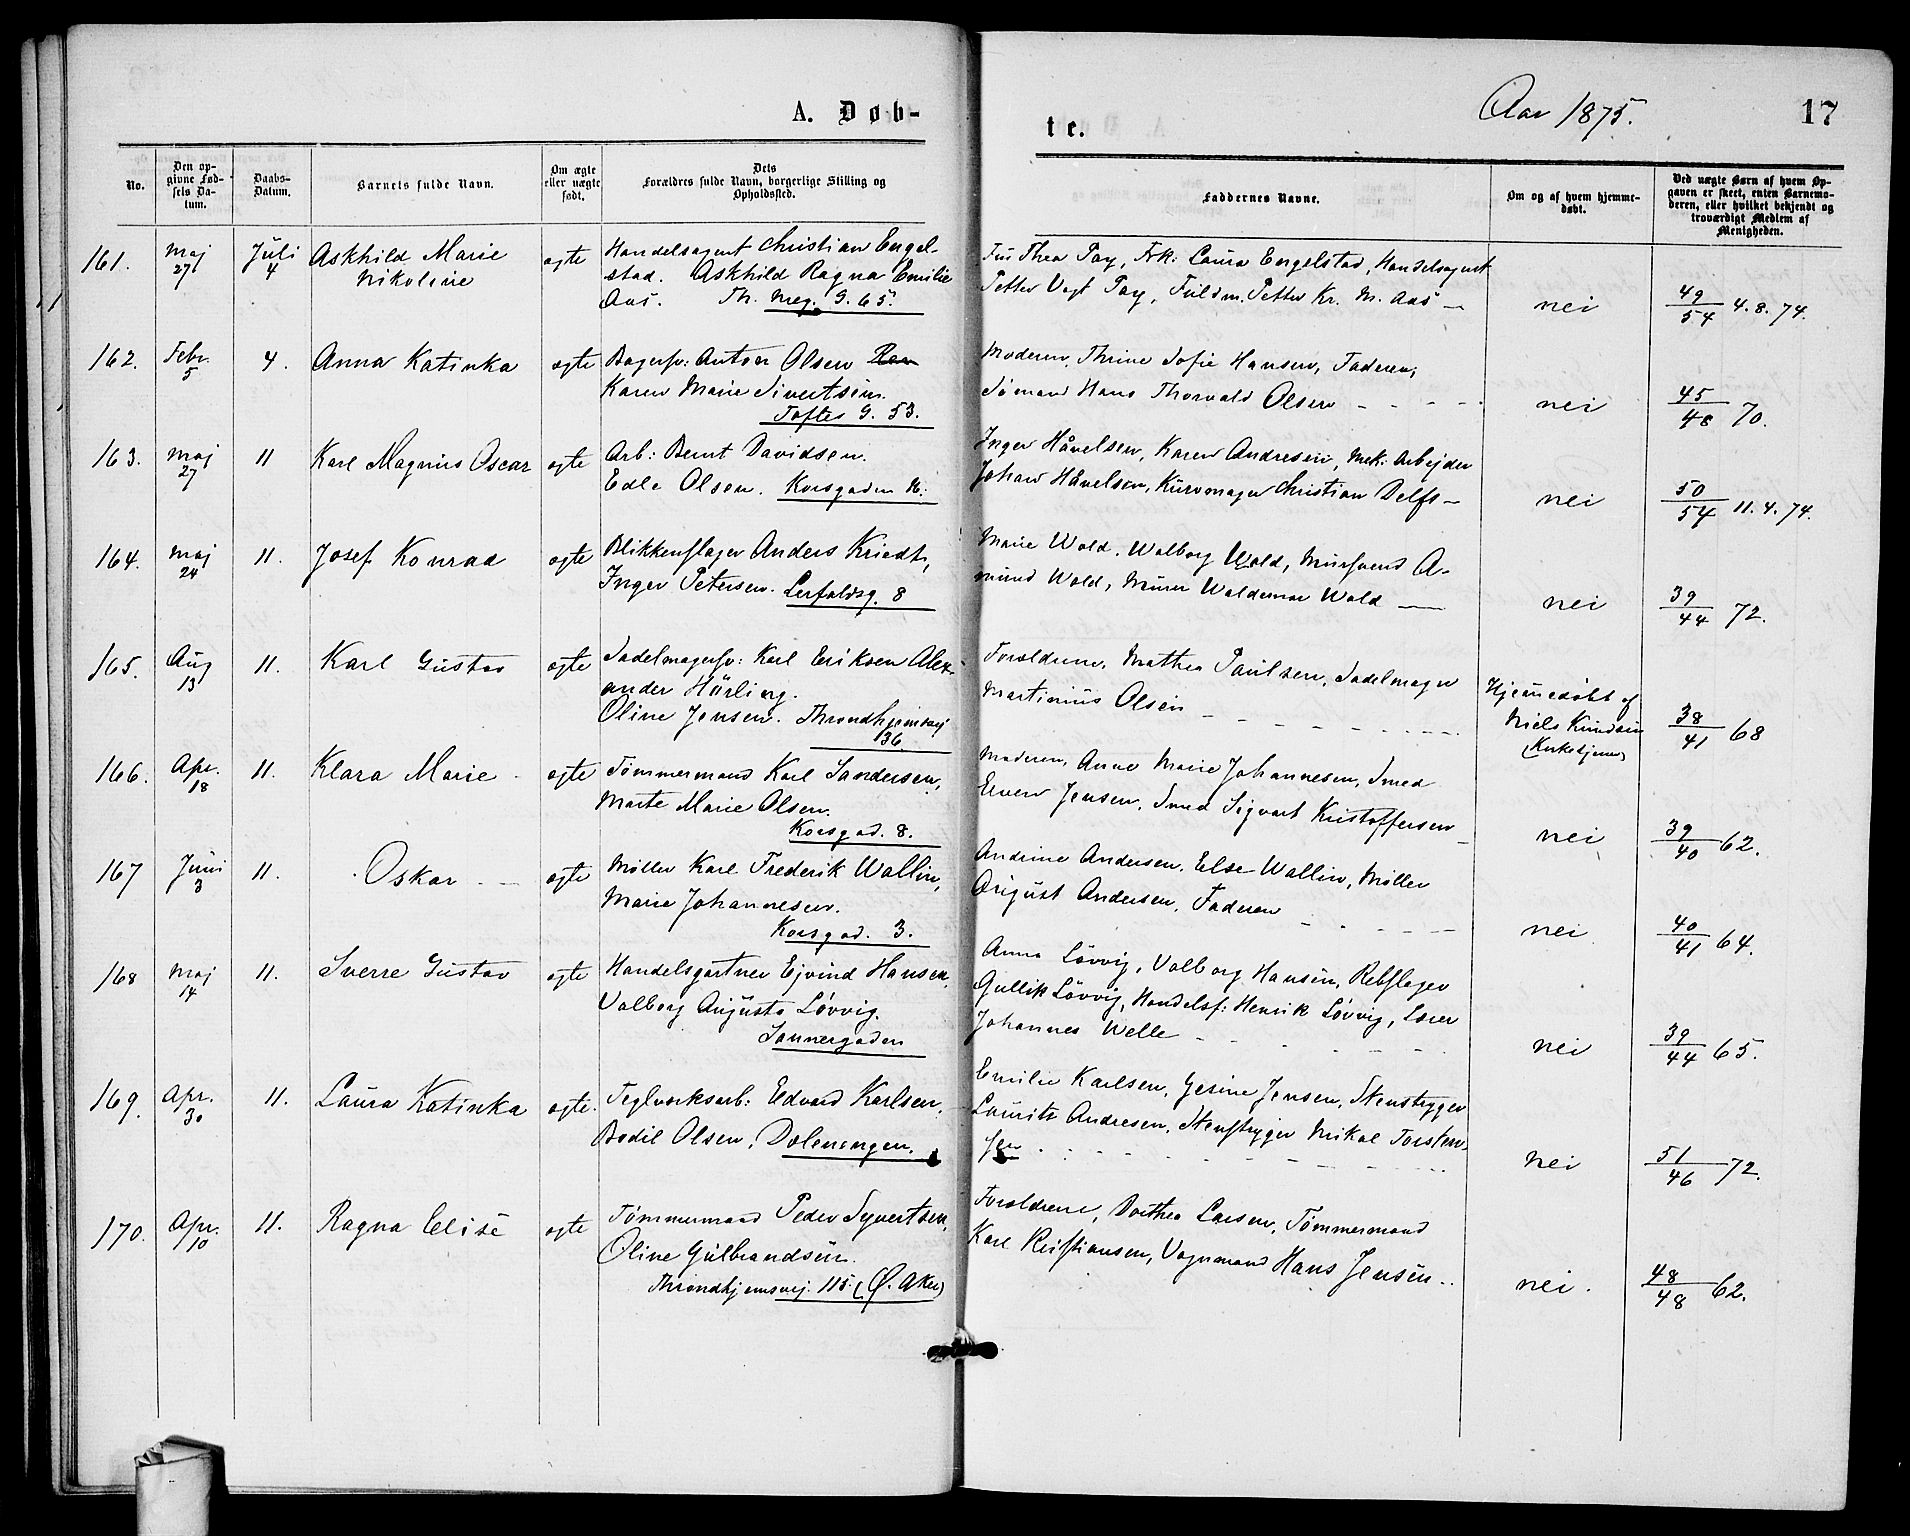 A. Døb-
te.
Aar 1875.
17
No.
Den op-
givne Fød-
sels Da-
tum.
Daabs-
Datum.
Barnets fulde Navn.
Om ægte
eller uægte
født.
Dets
Forældres fulde Navn, borgerlige Stilling og
Opholdssted.
Faddernes Navne.
Om og af hvem hjemme-
døbt.
Ved uægte Børn af hvem Op-
gaven er skeet, enten Barnemo-
deren, eller hvilket bekjendt og
troværdigt Medlem af
Menigheden.
161. Maj 27 Juli 4 Askhild Marie
Nikoline
ægte
Handelsagent Christian Engel-
stad. Askhild Ragna Emilie
Aas. Th. Meg. G. 65.
Fru Thea Pay, Frk: Laura Engelstad, Handelsagent
Petter Vogt Pay, Fuldm. Petter Kr. M. Aas —
nei
49/54 4.8.74.
162. Febr. 5 4. Anna Katinka
ægte
Bagersv: Anton Olsen
Karen Marie Sivertsen.
Toftes G. 53.
Moderen, Thrine Sofie Hansen, Faderen,
Sømand Hans Thorvald Olsen - - - -
nei
45/48 70.
163. Maj 27 11 Karl Magnus Oscar
ægte
Arb: Bernt Davidsen.
Edle Olsen. Korsgaden 16.
Inger Håvelsen, Karen Andresen, Mek: Arbejder
Johan Håvelsen, Kurvmager Christian Delfs —
nei
50/54 11.4.74.
164. Maj 24 11. Josef Konrad
ægte
Blikkenslager Anders Kriedt,
Inger Petersen. Lerfaldsg. 8
Marie Wold, Walborg Wold, Mursvend A-
mund Wold, Murer Waldemar Wold —
nei
39/44 72.
165. Aug 13 11. Karl Gustav
ægte
Sadelmagersv: Karl Eriksen Alex-
ander Hörling.
Oline Jensen. Throndhjemsvej
36
Forældrene, Mathea Paulsen, Sadelmager
Martinius Olsen - - - - - -
Hjemmedøbt af
Niels Knudsen
(Kirketjener)
38/41 68
166. Apr. 18 11. Klara Marie
ægte
Tømmermand Karl Sandersen,
Marte Marie Olsen.
Korsgad. 8.
Moderen, Anne Marie Johannesen, Smed
Enven Jensen, Smed Sigvart Kristoffersen
nei
39/40 62.
167 Juni 3 11. Oskar
ægte
Møller Karl Frederik Wallin,
Marie Johannesen.
Korsgad. 3.
Andrine Andersen, Else Wallin, Møller
August Andersen, Faderen - - - -
nei
40/41 64.
168 Maj 14 11. Sverre Gustav
ægte
Handelsgartner Ejvind Hansen,
Valborg Augusta Løvvig.
Sannergaden
Anna Løvvig, Valborg Hansen, Rebslager
Gullik Løvvig, Handelsf: Henrik Løvvig, Lærer
Johannes Welle - - - - - -
nei
39/44 65.
169. Apr. 30 11. Laura Katinka
ægte.
Teglværksarb: Edvard Karlsen,
Bodil Olsen, Dælenengen.
Emilie Karlsen, Gesine Jensen, Stenbrygger
Laurits Andresen, Stenbrygger Mikal Torsten-
sen - - - - - -
nei
51/46 72.
170. Apr. 10 11. Ragna Elise
ægte
Tømmermand Peder Syvertsen,
Oline Gulbrandsen.
Throndhjemsvej. 115 (Ø. Aker)
Forældrene, Dorthea Larsen, Tømmermand
Karl Kristiansen, Vognmand Hans Jensen..
nei.
48/48 62.